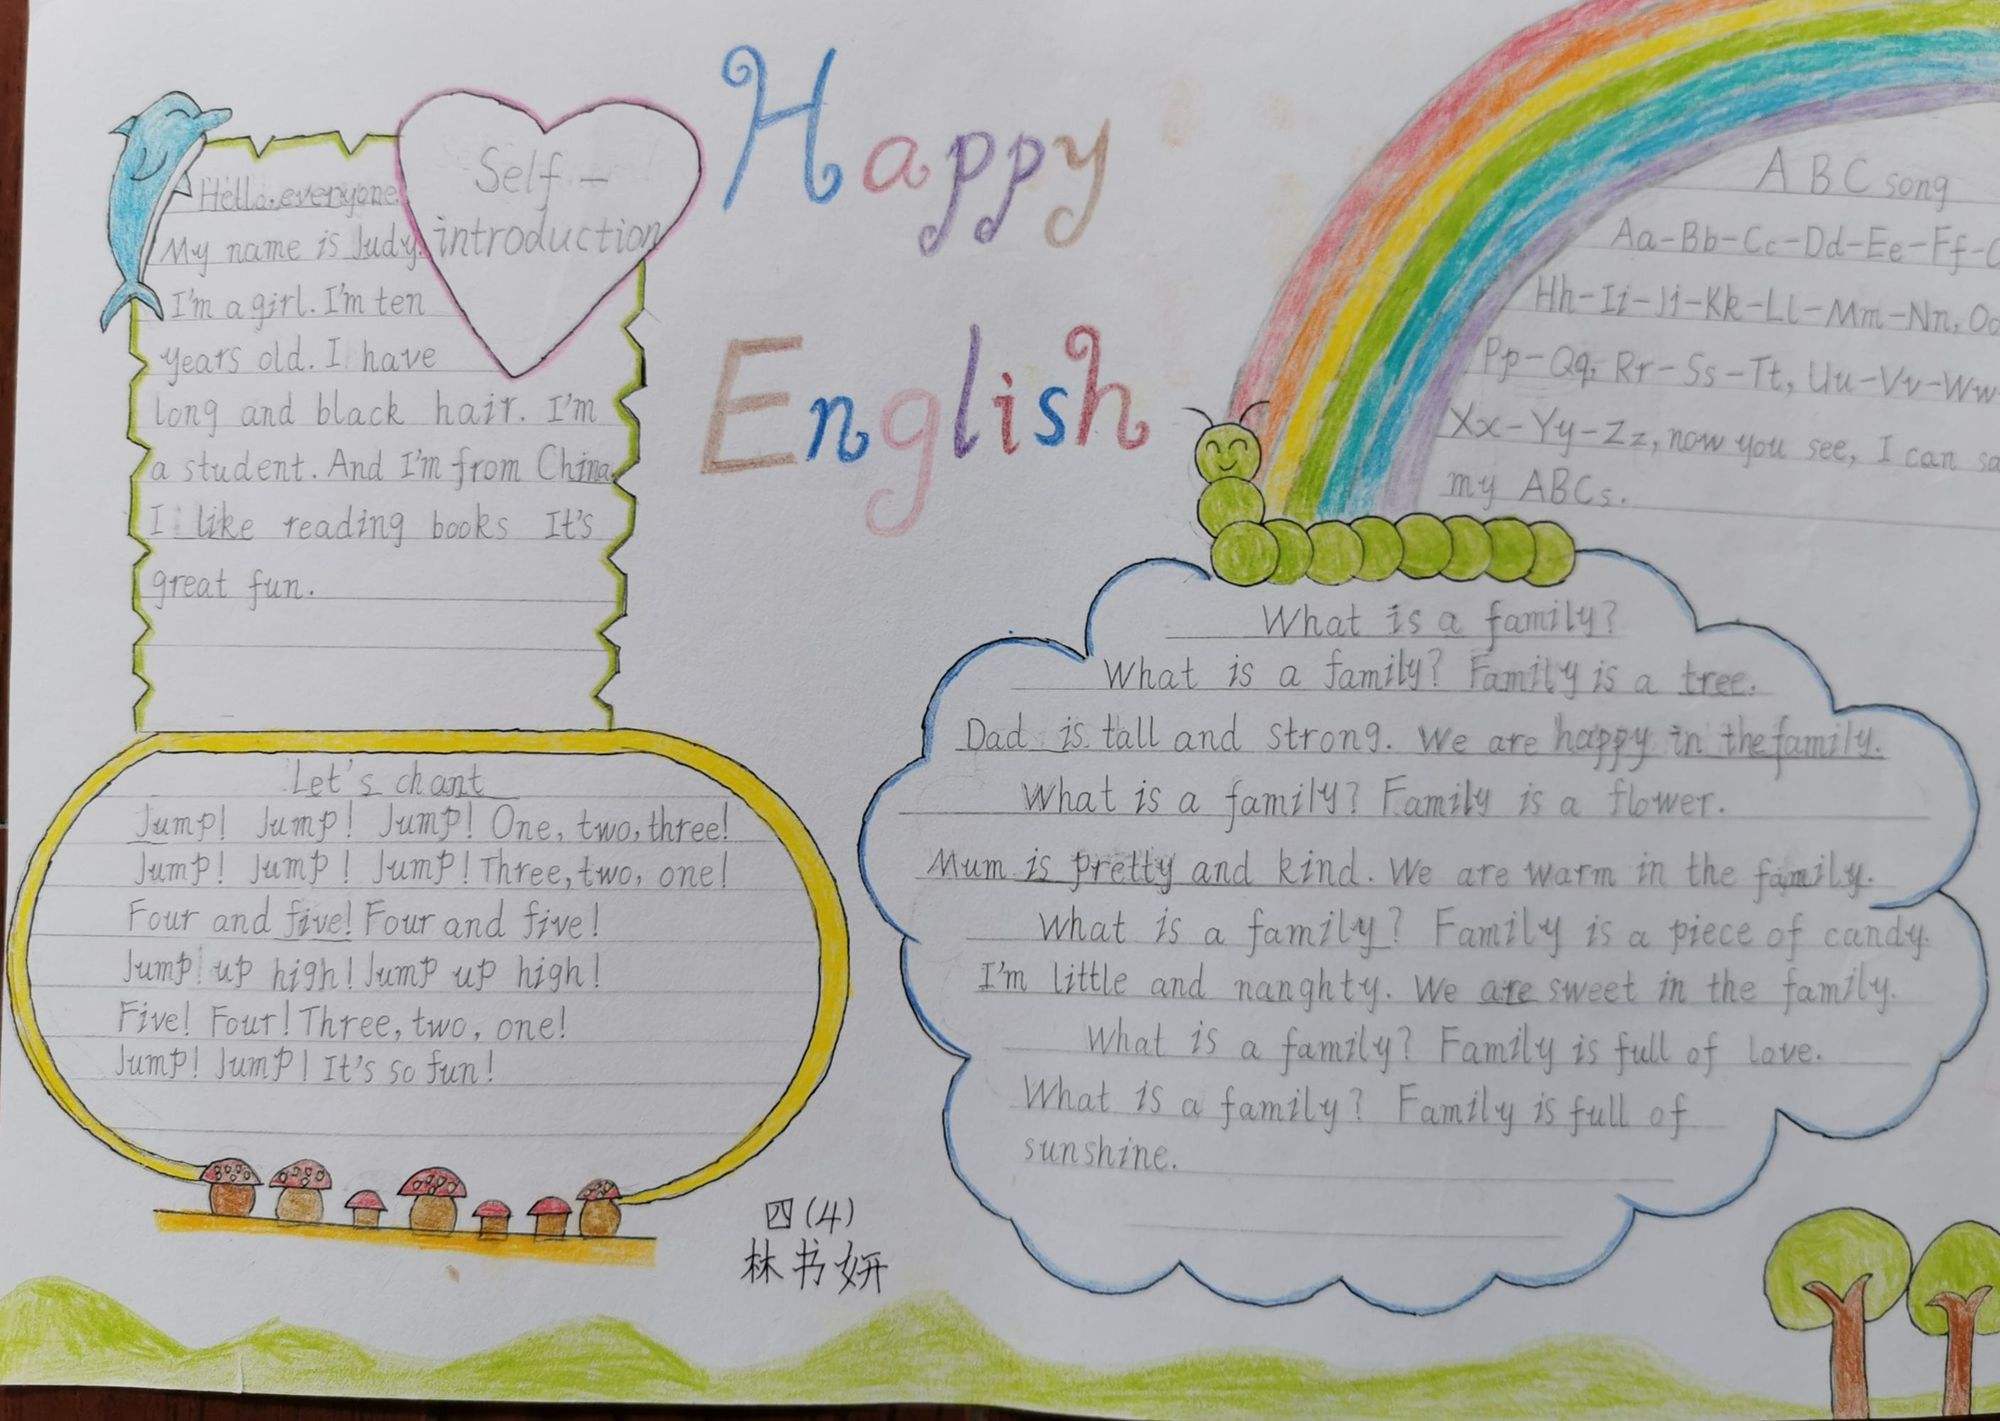 Happy
English
Self-
introduction
Hello, everyone
My name is Judy.
I'm a girl. I'm ten
years old. I have
long and black hair. I'm
a student. And I'm from China.
I like reading books It's
great fun.
Let's chant
Jump! Jump! Jump! One, two, three!
Jump! Jump! Jump! Three, two, one!
Four and five! Four and five!
Jump up high! Jump up high!
Five! Four! Three, two, one!
Jump! Jump! It's so fun!
四(4)
林书妍
A B C song
Aa-Bb-Cc-Dd-Ee-Ff-
Hh-Ii-Jj-Kk-Ll-Mm-Nn, Oo
Pp-Qq, Rr-Ss-Tt, Uu-Vv-Ww-
Xx-Yy-Zz, now you see, I can
my ABCs.
What is a family?
What is a family? Family is a tree.
Dad is tall and strong. We are happy in the family.
What is a family? Family is a flower.
Mum is pretty and kind. We are warm in the family.
What is a family? Family is a piece of candy.
I'm little and nanghty. We are sweet in the family.
What is a family? Family is full of love.
What is a family? Family is full of
sunshine.